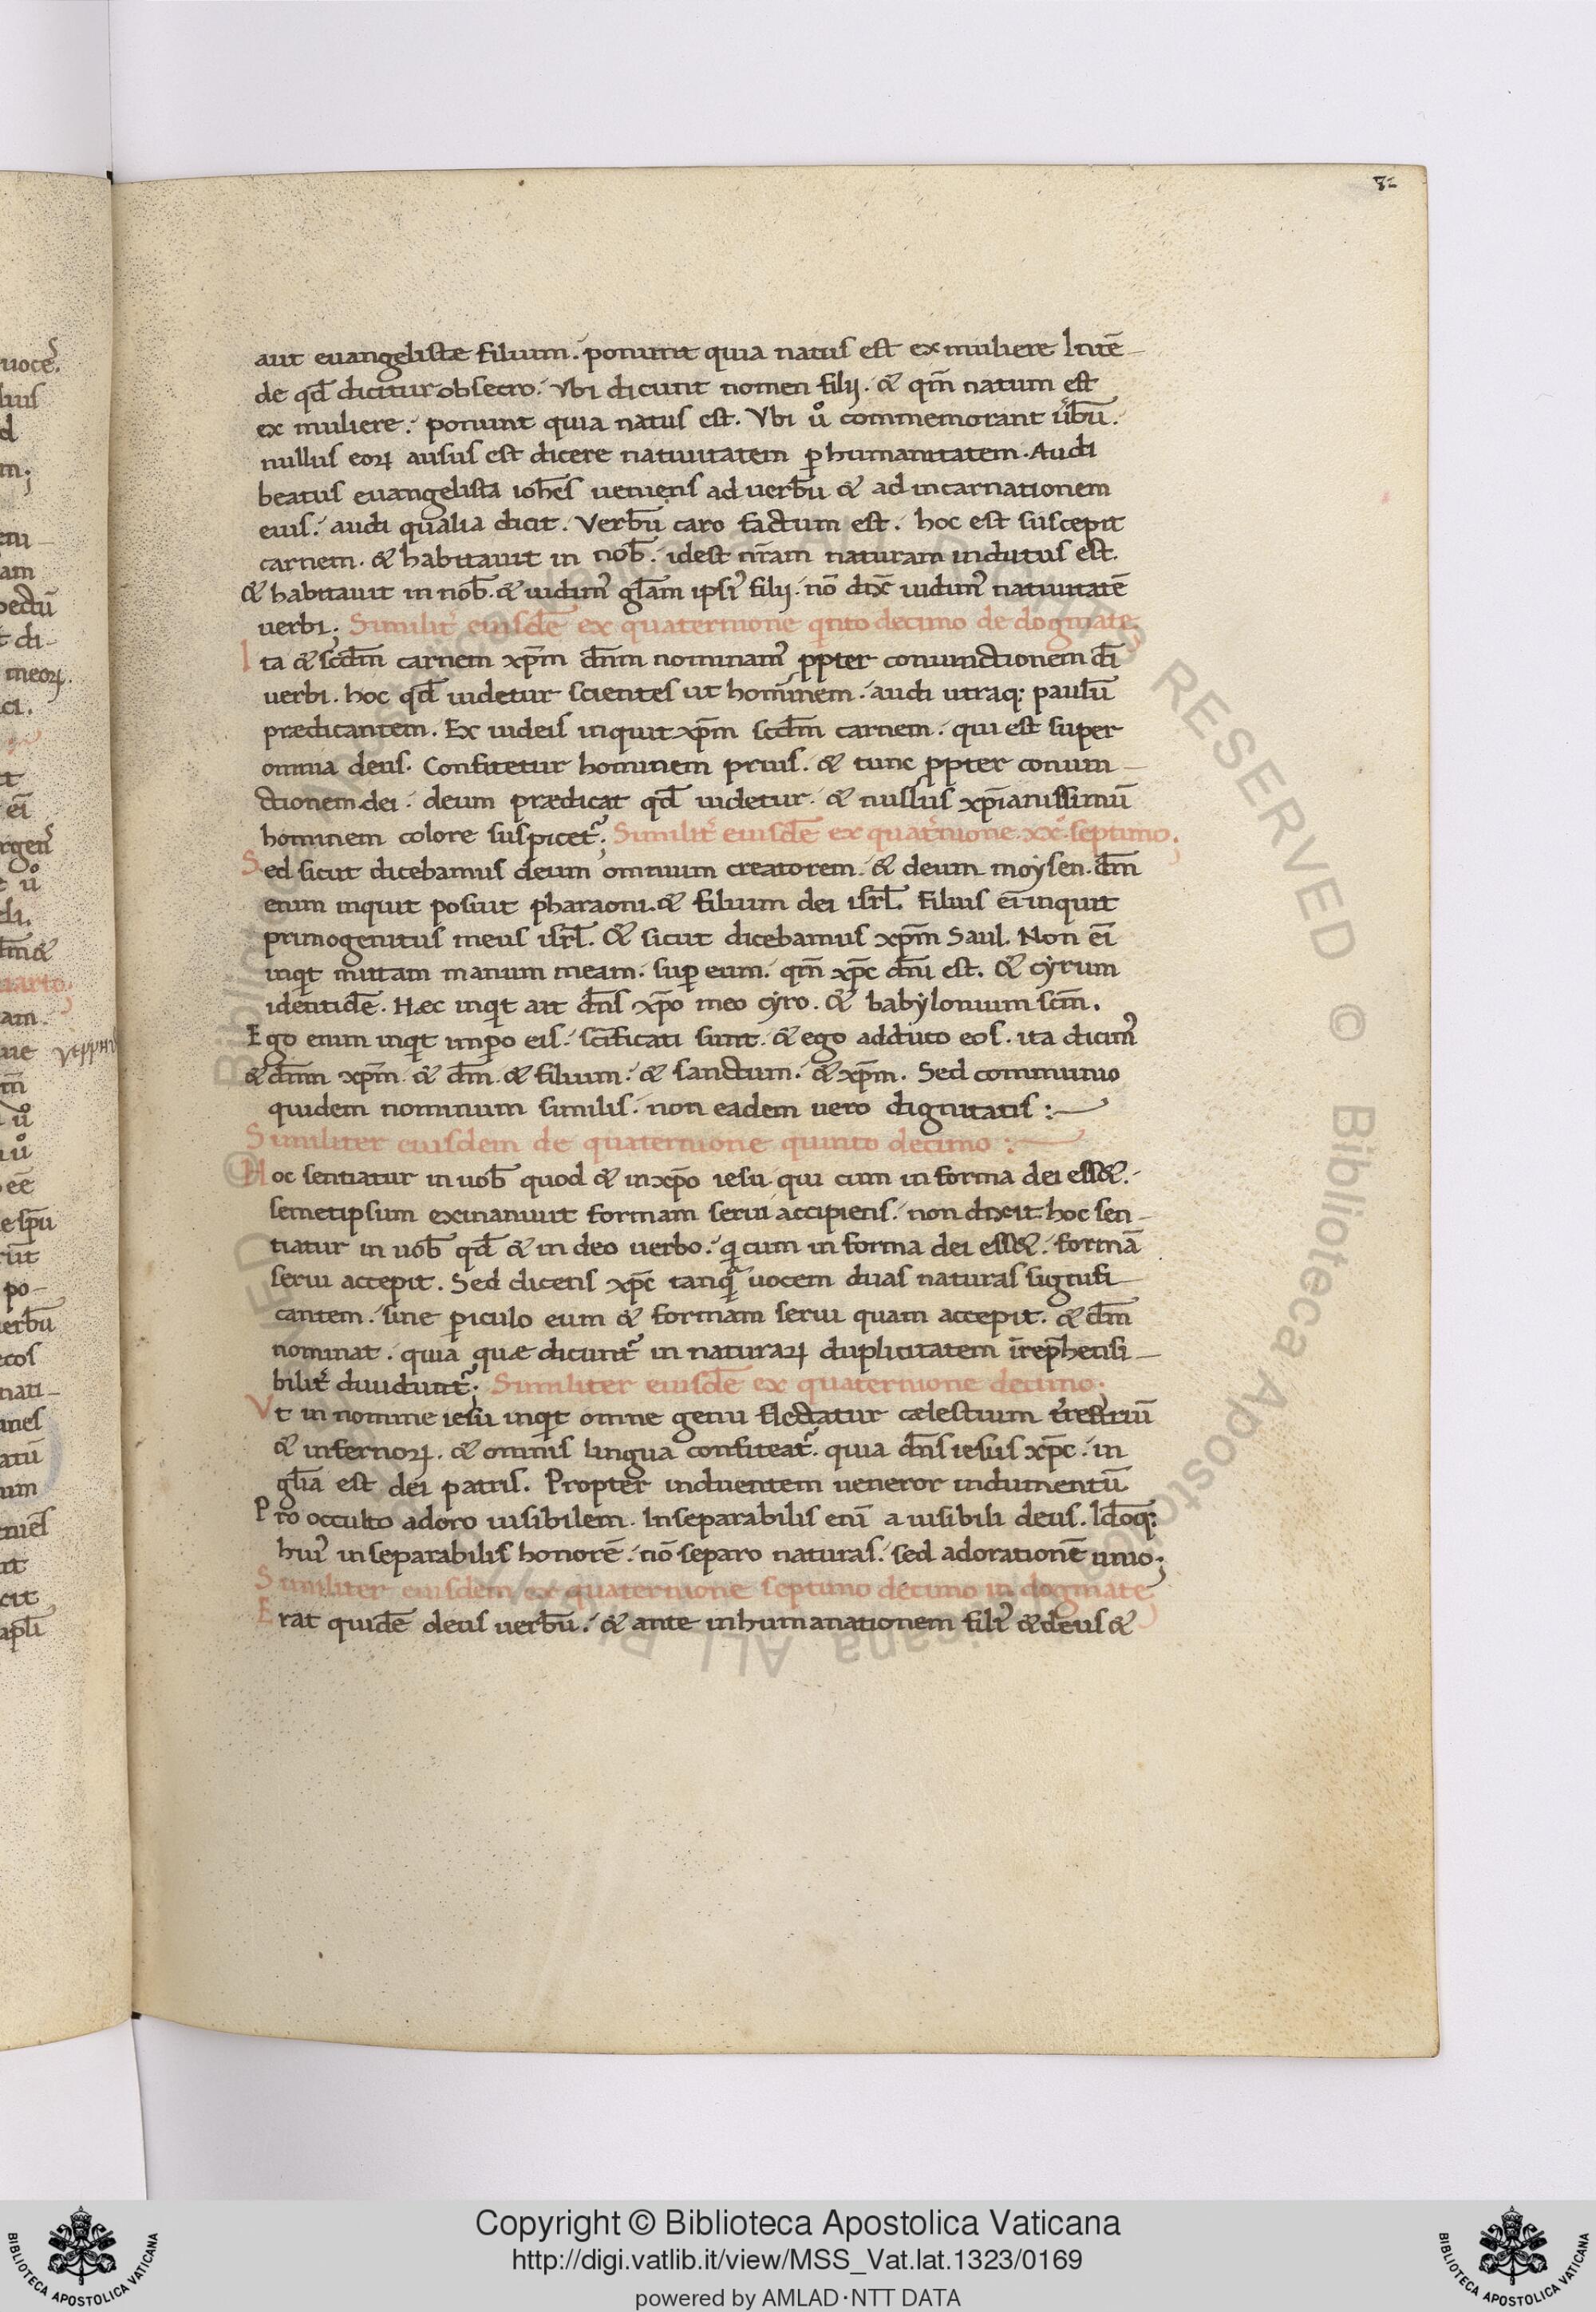 82
aut euangelistæ filium. ponunt quia natus est ex muliere Intē-
de qđ dicitur obsecro. Vbi dicunt nomen filij. & qm̄ natum est
ex muliere. ponunt quia natus est. Vbi uº commemorant ūbū.
nullus eoꝝ ausus est dicere natiuitatem ꝑ humanitatem. Audi
beatus euangelista ioh̄es ueniens ad uerbū & ad incarnationem
eius. audi qualia dicit. Verbū caro factum est. hoc est suscepit
carnem. & habitauit in nob̄. idest nr̄am naturam indutus est.
& habitauit in nob̄. & uidimꝰ gl̄am ipsiꝰ filij. nō dix̄ uidimꝰ natiuitatē
uerbi; Similit̄ eiusdē ex quaternione qinto decimo de dogmate;
Ita & scd̄m carnem xp̄m dn̄m nominamꝰ ꝓpter coniunctionem dī
uerbi. hoc qđ uidetur scientes ut hominem. audi utraq; paulū
prædicantem. Ex iudeis inquit xp̄m scd̄m carnem. qui est super
omnia deus. Confitetur hominem prius. & tunc ꝓpter coniun-
ctionem dei. deum prædicat qđ uidetur. & nullus xp̄ianissimū
hominem colore suspicet̄; Similit̄ eiusdē ex quat̄nione xxº septimo;
Sed sicut dicebamus deum omnium creatorem. & deum moẏsen. dm̄
enim inquit posiut pharaoni. & filium dei isrl̄. Filius ei̅ inquit
primogenitus meus isrl̄. & sicut dicebamus xp̄m Saul. Non ei̅
inqit mittam manum meam. suꝑ eum. qm̄ xp̄c dn̄i est. & cẏrum
identidē. Hæc inqit ait dn̄s xp̄o meo cẏro. & babẏlonium scm̄.
Ego enim inqit imꝑo eis. sc̄ificati sunt. & ego adduco eos. ita dicimꝰ
& dn̄m xp̄m. & dm̄. & filium. & sanctum. & xp̄m. Sed communio
quidem nominum similis. non eadem uero dignitatis:-
Similiter eiusdem de quaternione quinto decimo:-
Hoc sentiatur in uob̄ quod & in xp̄o iesu qui cum in forma dei ess&.
semetipsum exinaniuit formam serui accipiens. non dixit hoc sen-
tiatur in uob̄ qđ & in deo uerbo. qi cum in forma dei ess&. formā
serui accepit. Sed dicens xp̄c tanqᷓ uocem duas naturas signifi-
cantem. sine ꝑiculo eum & formam serui quam accepit. & dm̄
nominat. quia quæ dicunt̄ in naturaꝝ duplicitatem īrep̄hensi-
bilit̄ diuidunt̄; Similiter eiusdē ex quaternione decimo;
Vt in nomine iesu inqit omne genu flectatur cælestium t̄restriū
& infernoꝝ. & omnis lingua confiteat̄. quia dn̄s iesus xp̄c. in
gl̄ia est dei patris. Propter induentem ueneror indumentū
Pro occulto adoro uisibilem. Inseparabilis eni̅ a uisibili deus. Id̄oq;
huiꝰ inseparabilis honorē. nō separo naturas. sed adorationē unio;
Similiter eiusdem ex quaternione septimo decimo in dogmate;
Erat quidē deus uerbū. & ante inhumanationem filiꝰ & deus &